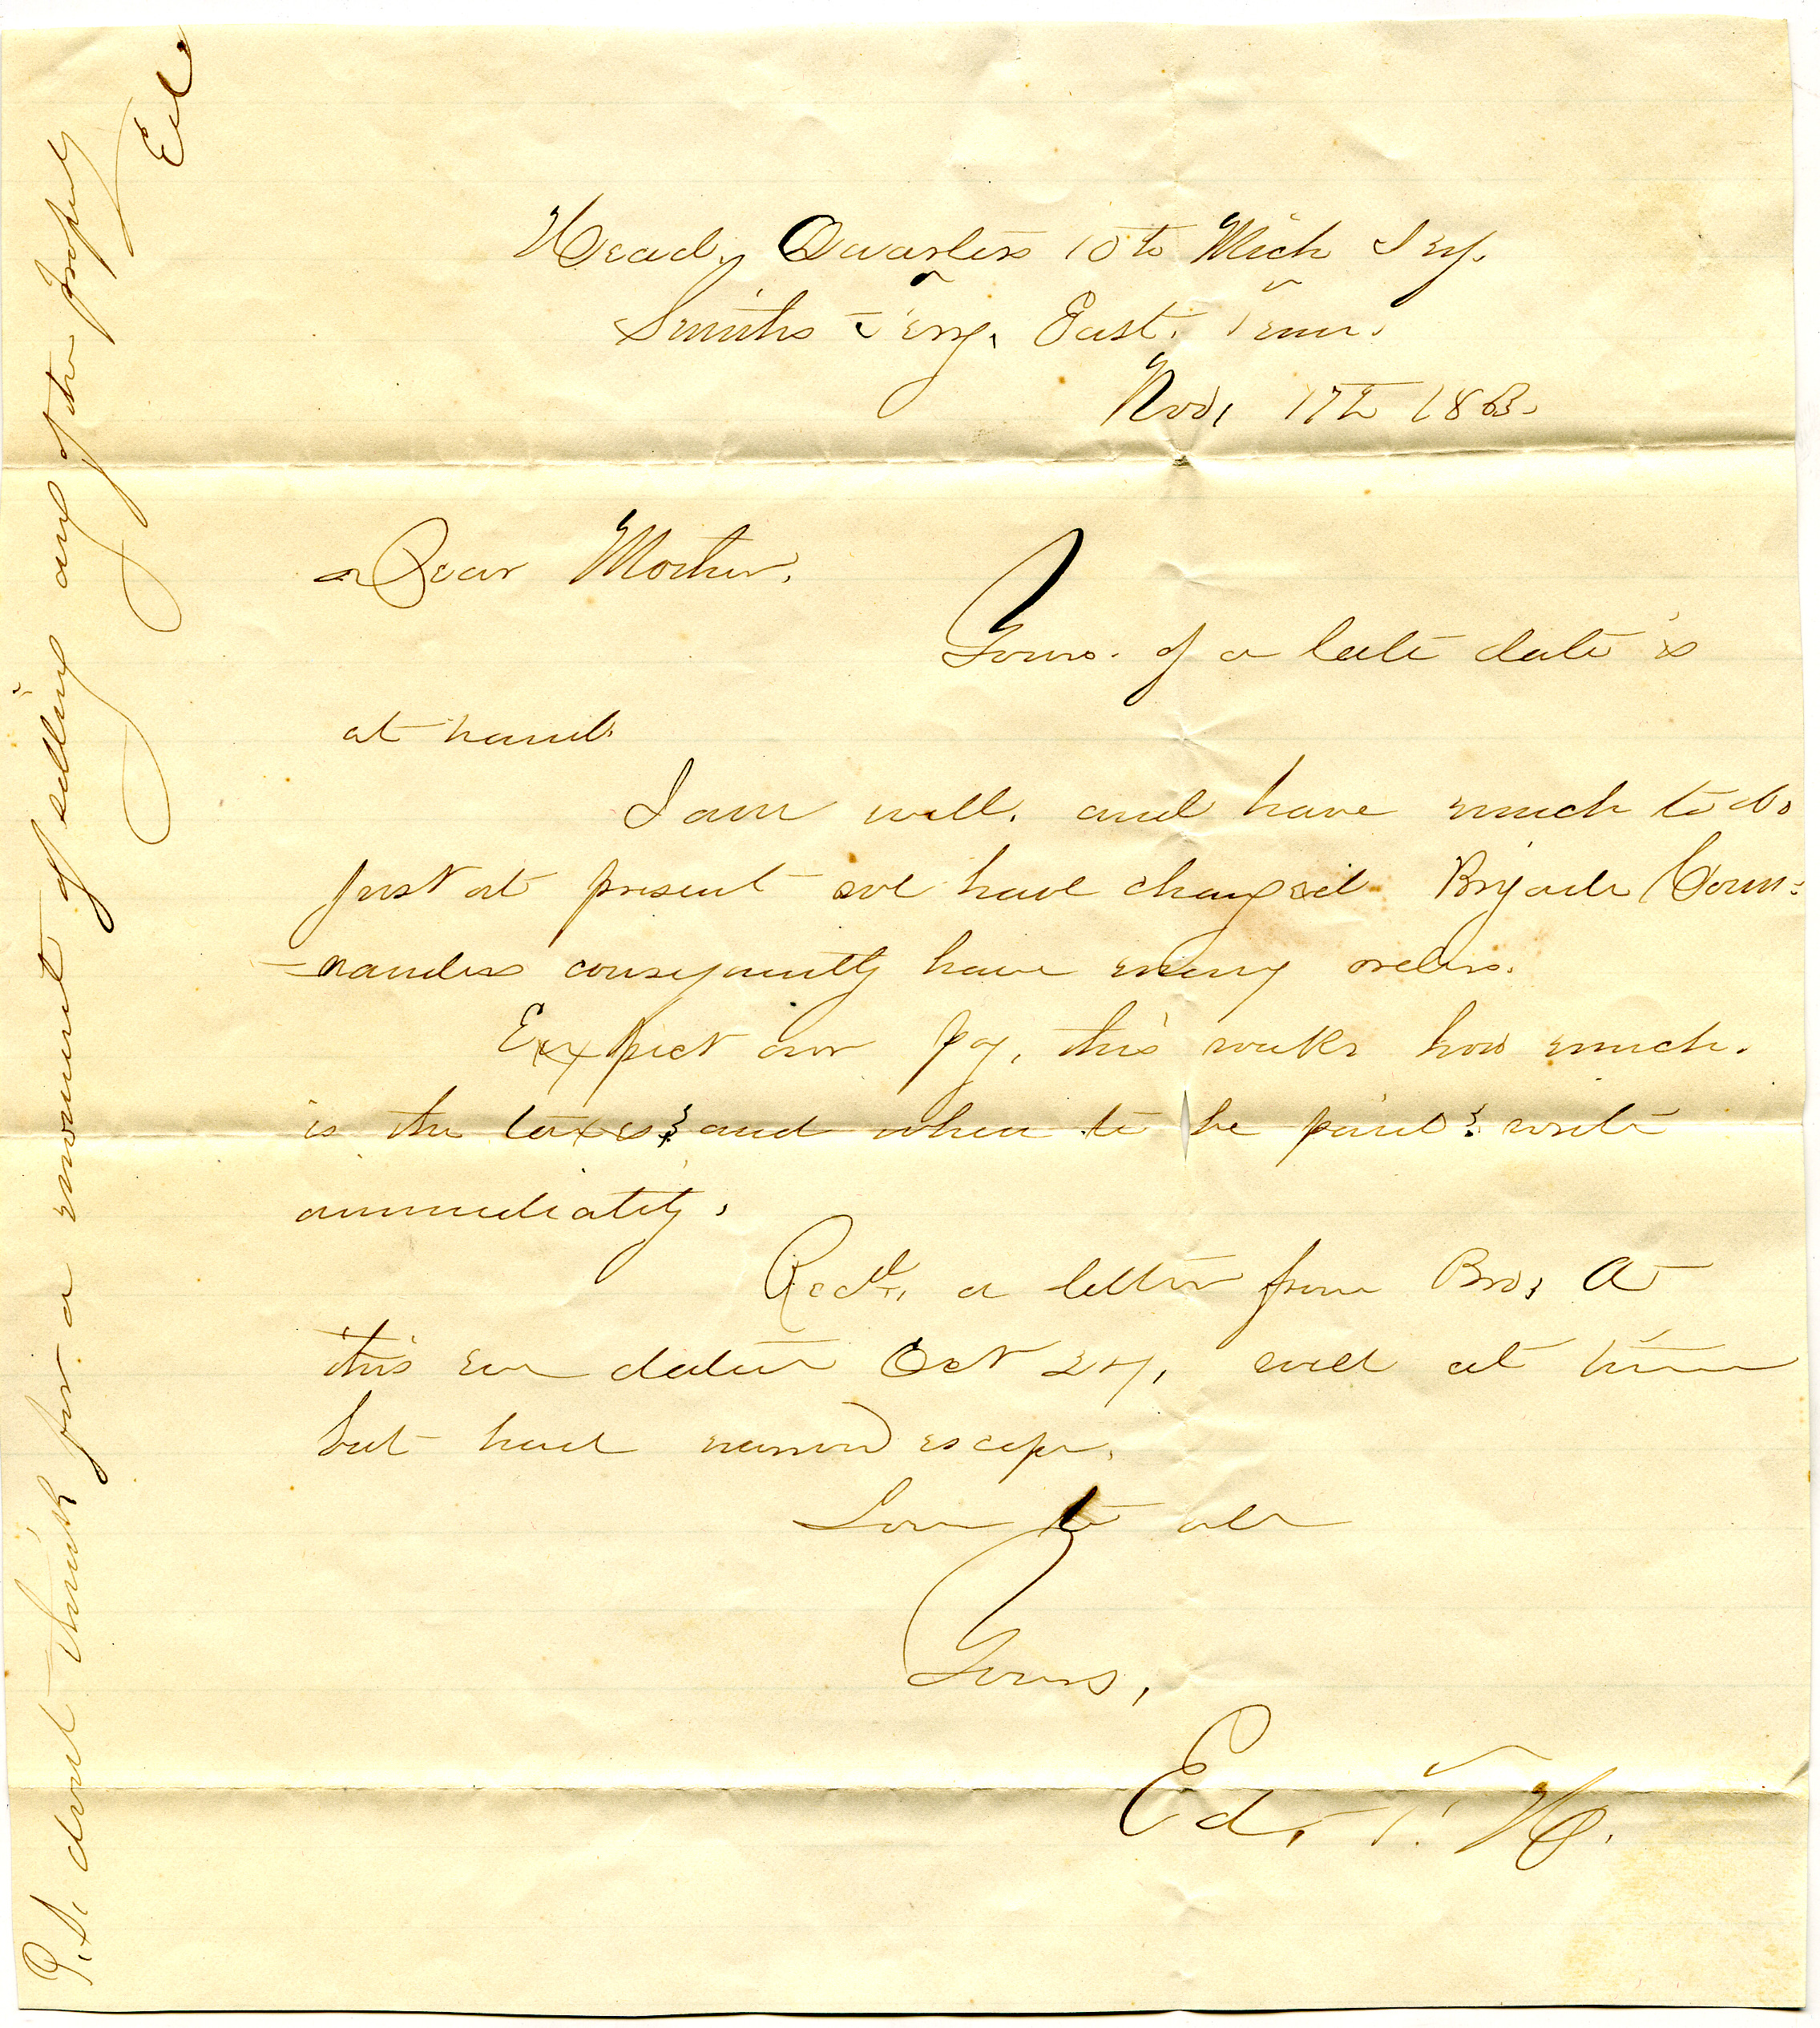 Head, Quarters 10th Mich Inf.
Smiths Fery. East. Tenn.
Nov, 17th 1863.
Dear Mother.
Yours. of a late date is
at hand.
I am well. and have much to do
just at present we have changed Brigade Com=
=manders consequently have many orders.
Expect our pay, this week how much.
is the taxes? and when to be paid? write
immediatly,
Recd. a letter from Bro, A
this eve dated Oct 27, well at time
but had narrow escape.
Love to all
Yours,
Ed. T. H.
P.S. dont think for a moment of selling any of the property
Ed.